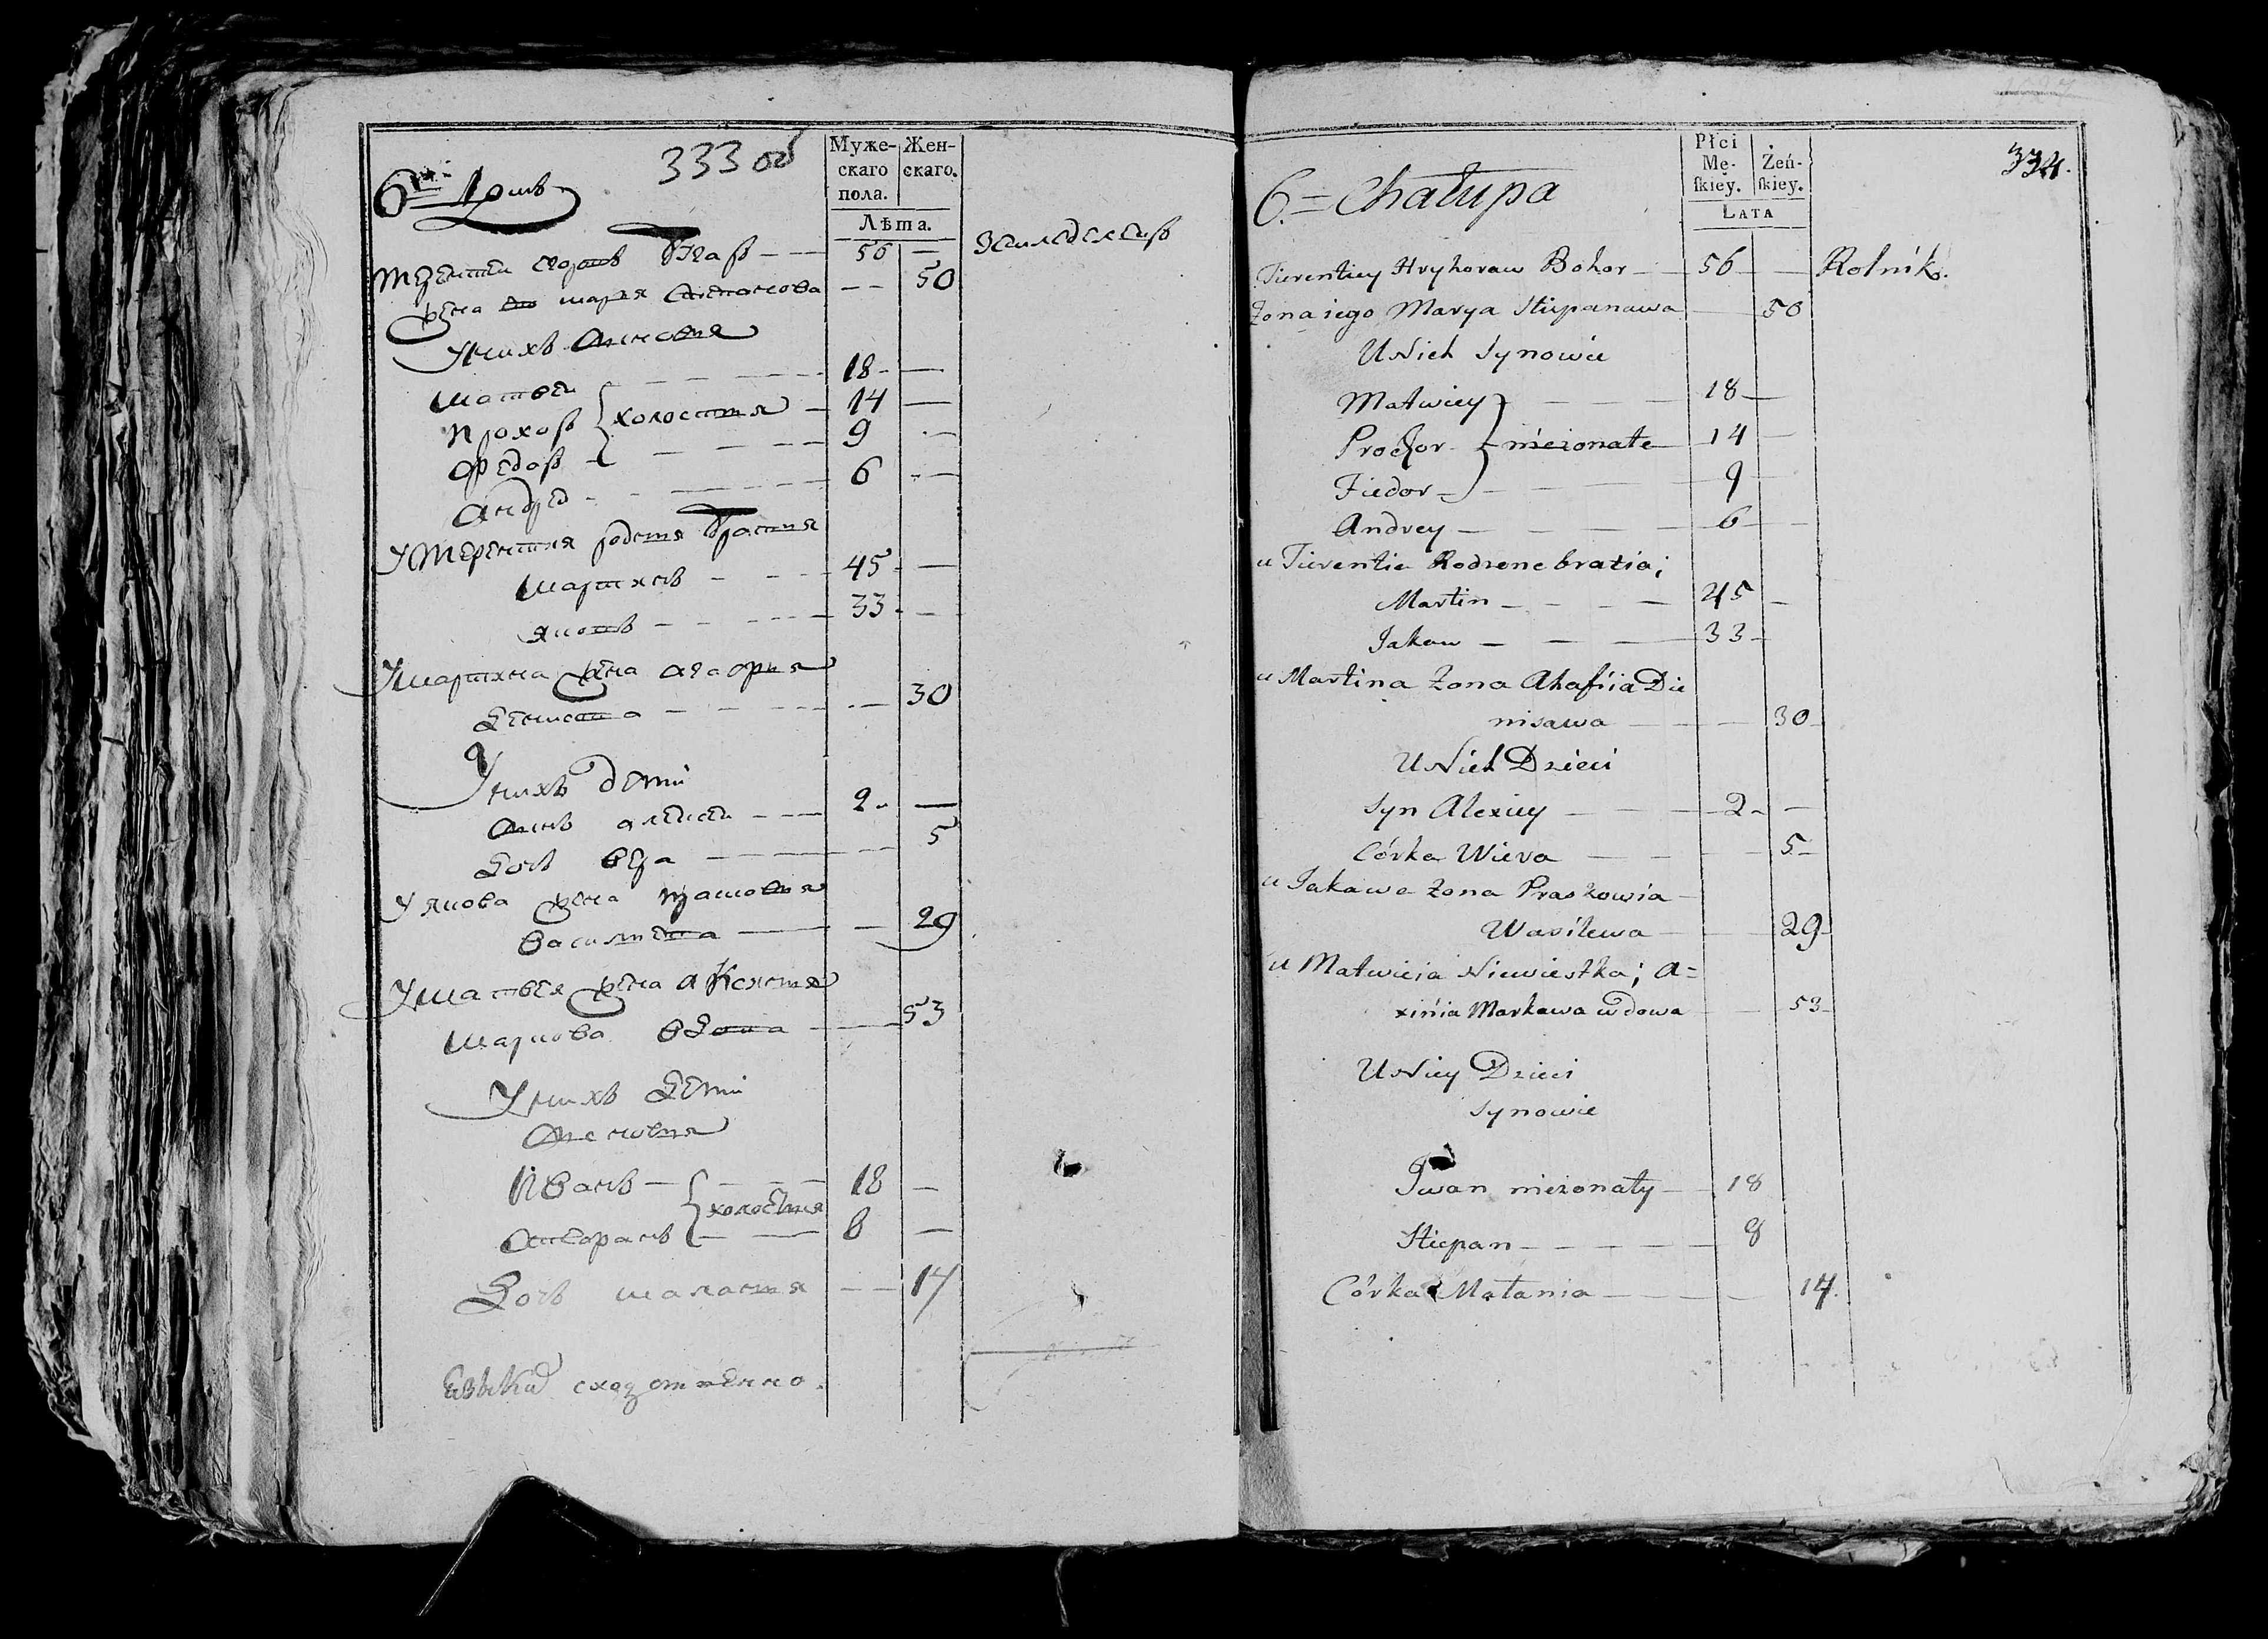 333 об
6й Домъ
Муже-
скаго
пола.
Жен-
скаго.
Лѣта.
Терентей Егоровъ Бугаръ — 56 —
жена его марья Степанова — 50
Унихъ Сыновья
Матвей — 18 —
Прохоръ холостыя — 14 —
Федоръ — 9 —
Андрей — 6 —
У Терентия родныя братия
Мартинъ — 45 —
Яковъ — 33 —
Умартина жена агафия
Денисова — 30
Унихъ дети
Сынъ алексей — 2 —
Дочь Вера — 5
У якова жена
Васильева — 29
Уматвея жена аксиния
Маркова вдова — 53
Унихъ дети
Сыновья
Иванъ — 18 —
холостыя
8 —
Дочь маланья — 14
334.
6.= Chałupa
Płci
Mę-
ſkiey.
Żeń-
ſkiey.
Lata
Tierentiey Hryhoraw Bohor — 56 — Rolnik.
Żona iego Marya Stiepanawa — 50
U Nich Synowie
Matwiey — 18 —
Prochor nieżonate — 14 —
Fiedor — 9
Andrey — 6 —
u Tierentia Rodzone bratia;
Martin — 45 —
Jakaw — 33 —
u Martina Żona Ahafiia Die
nisawa — 30
U Nich Dzieci
Syn Alexiey — 2 —
Córka Wiera — 5
u Jakawa Żona Praskowia
Wasilewa — 29
u Matwieia Niewiestka; A=
xinia Markawa wdowa — 53
U Niey Dzieci
Synowie
Iwan nieżonaty — 18
Stiepan — 8
Córka Małania — 14.